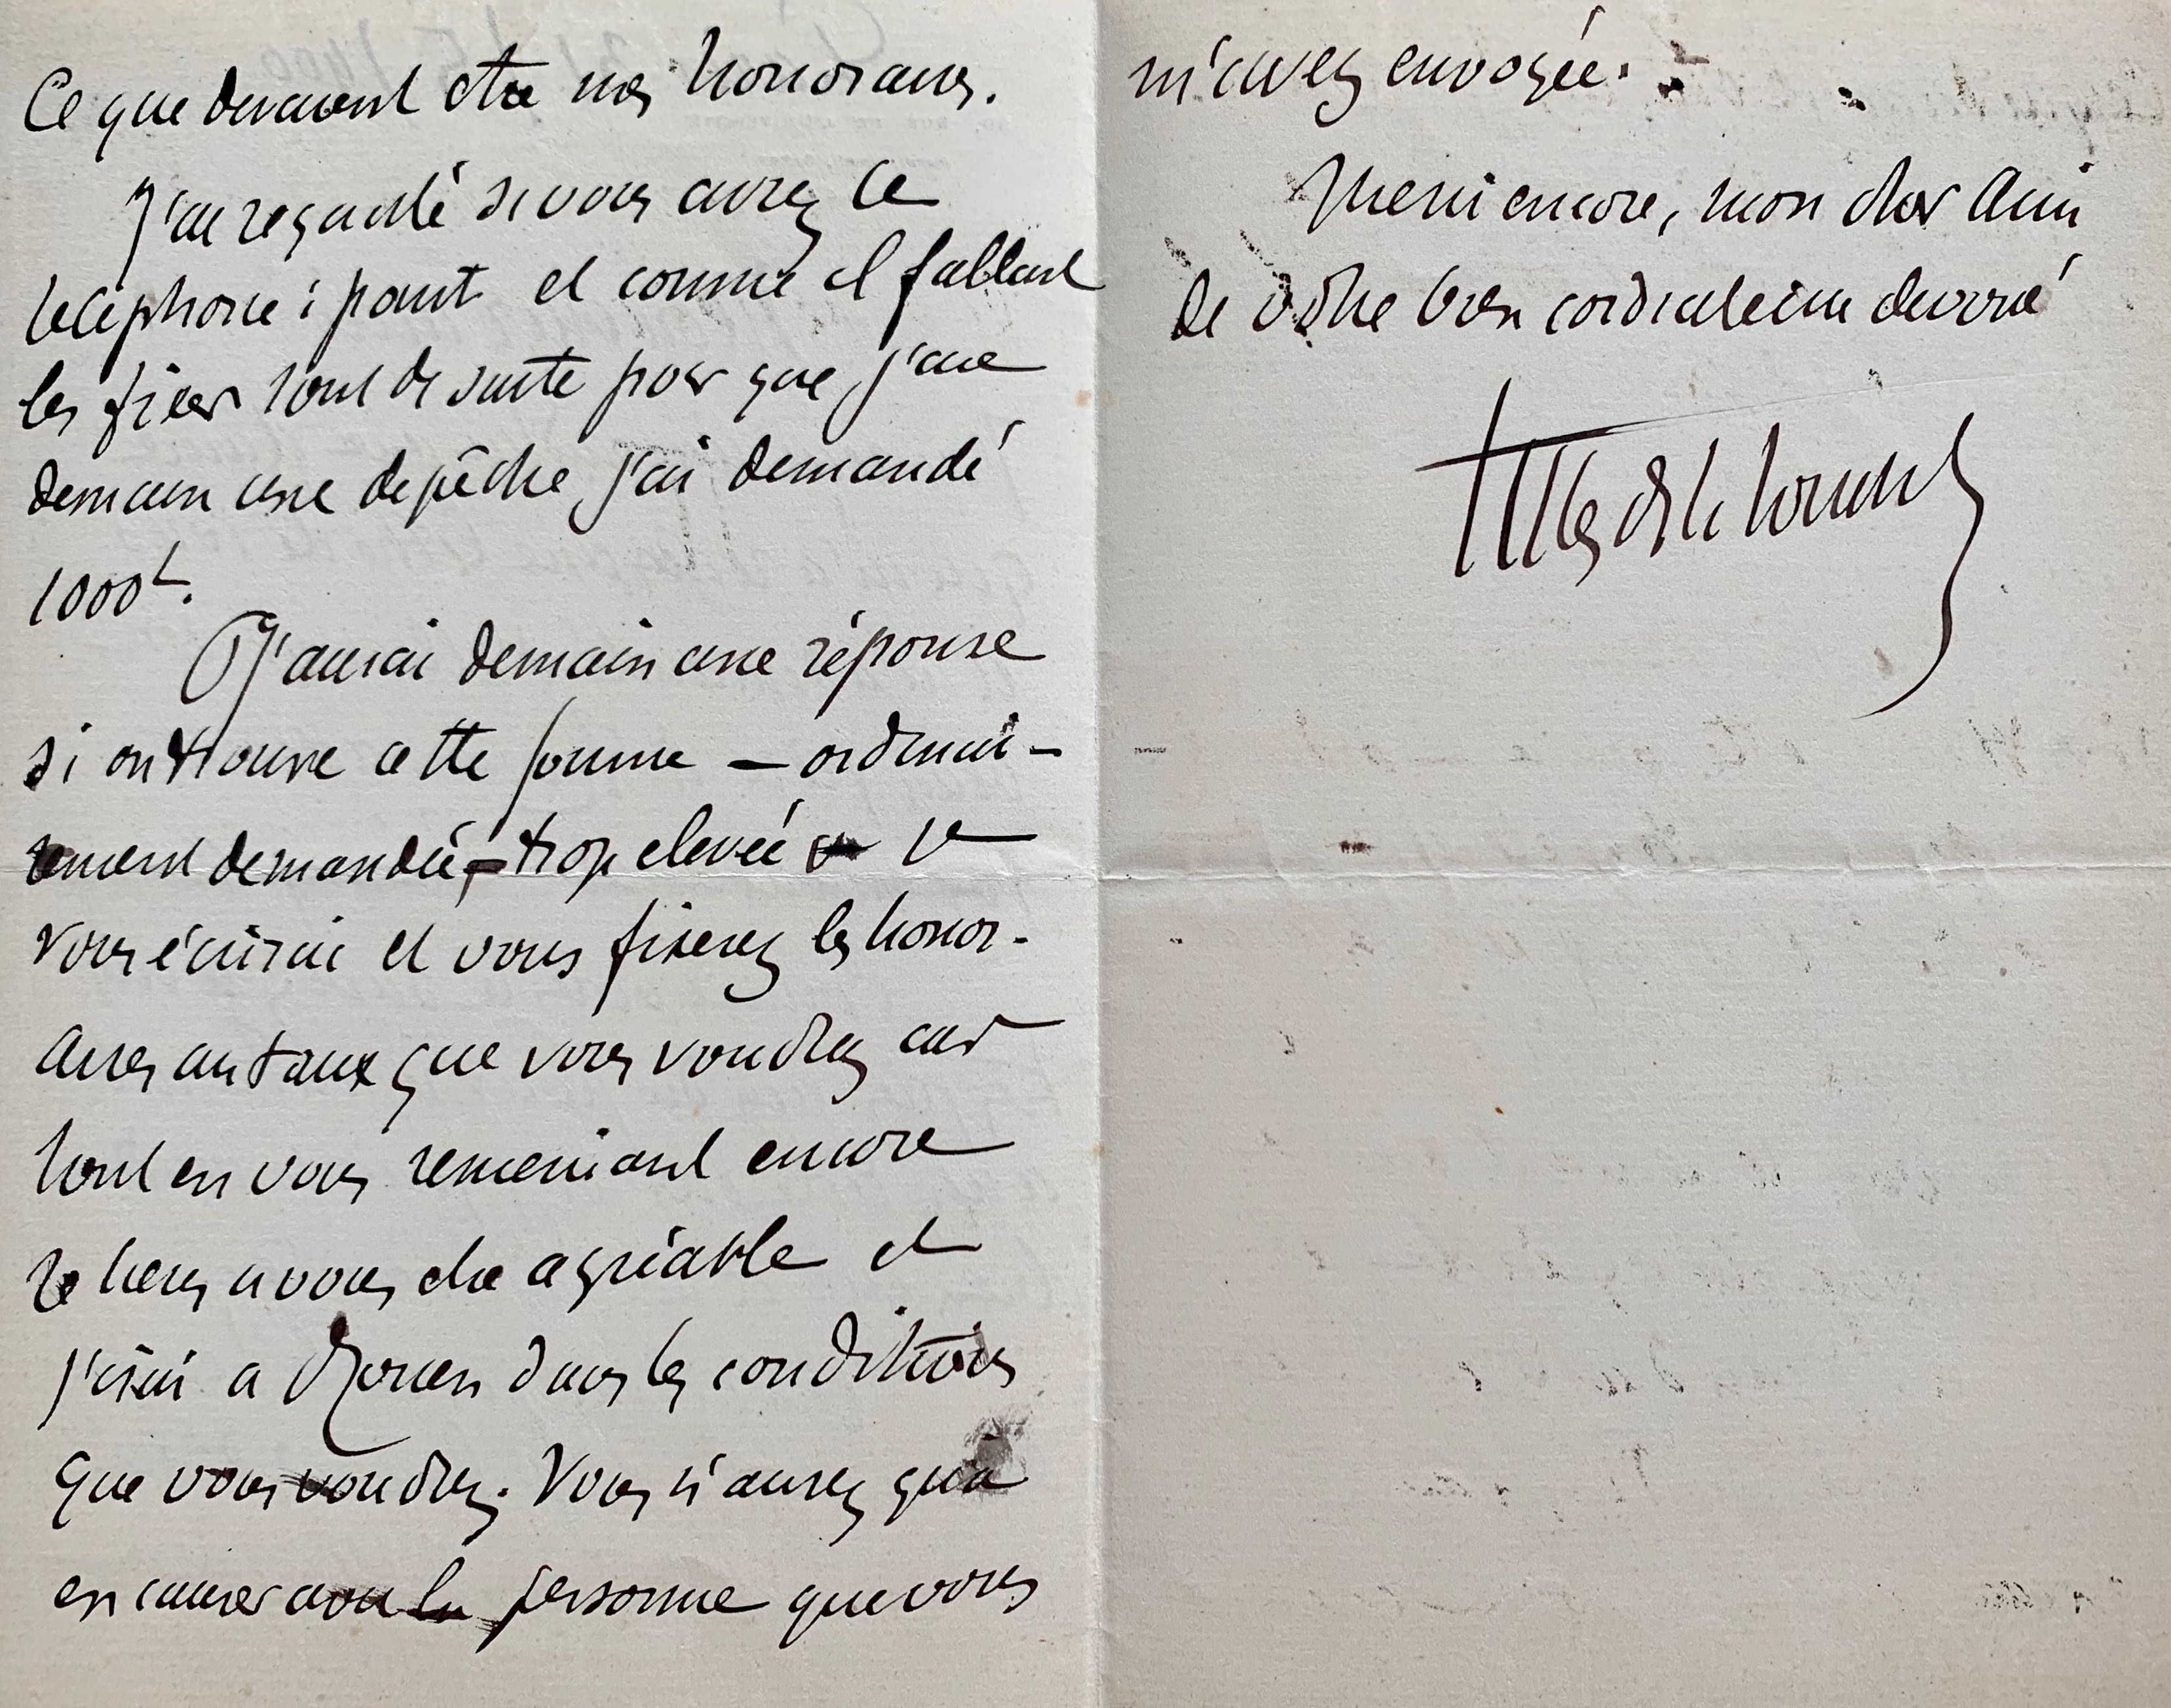 Ce que devaient etre mes honoraires.
J'ai regardé si vous aviez le
telephone : point et comme il fallait
les fixer tout de suite pour que j'aie
demain une depêche j'ai demandé
1000 L.
J'aurai demain une réponse
si on trouve cette somme — ordinai-
rement demandée, — trop elevée je
vous écrirai et vous fixerez les honor-
aires au taux que vous voudrez car
tout en vous remerciant encore
je tiens a vous etre agréable et
j'irai a Rouen dans les conditions
que vous voudrez. Vous n'aurez qu'à
en causer avec la personne que vous
m'avez envoyée.
Merci encore, mon cher Ami
de votre bien cordialement devoué
de la